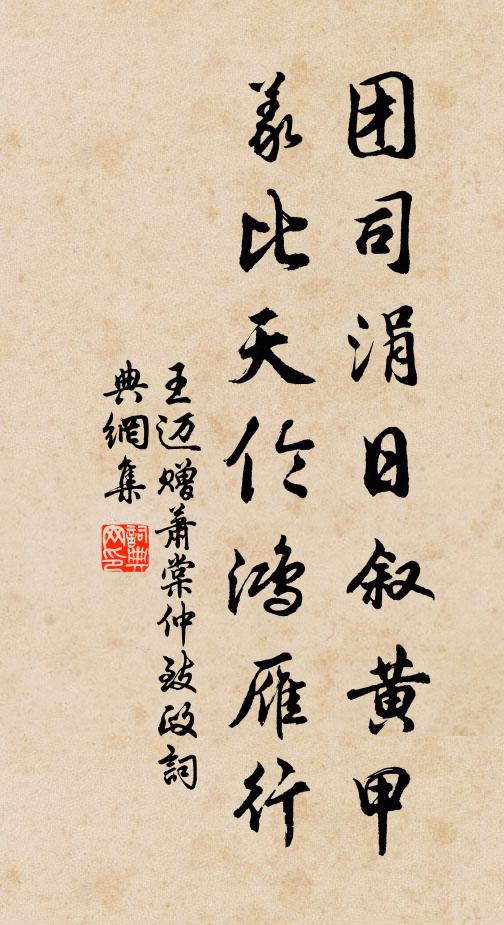 团司涓日叙黄甲
义比天伦鸿雁行
王迈赠萧棠仲致政詞
典網集
詞典网印